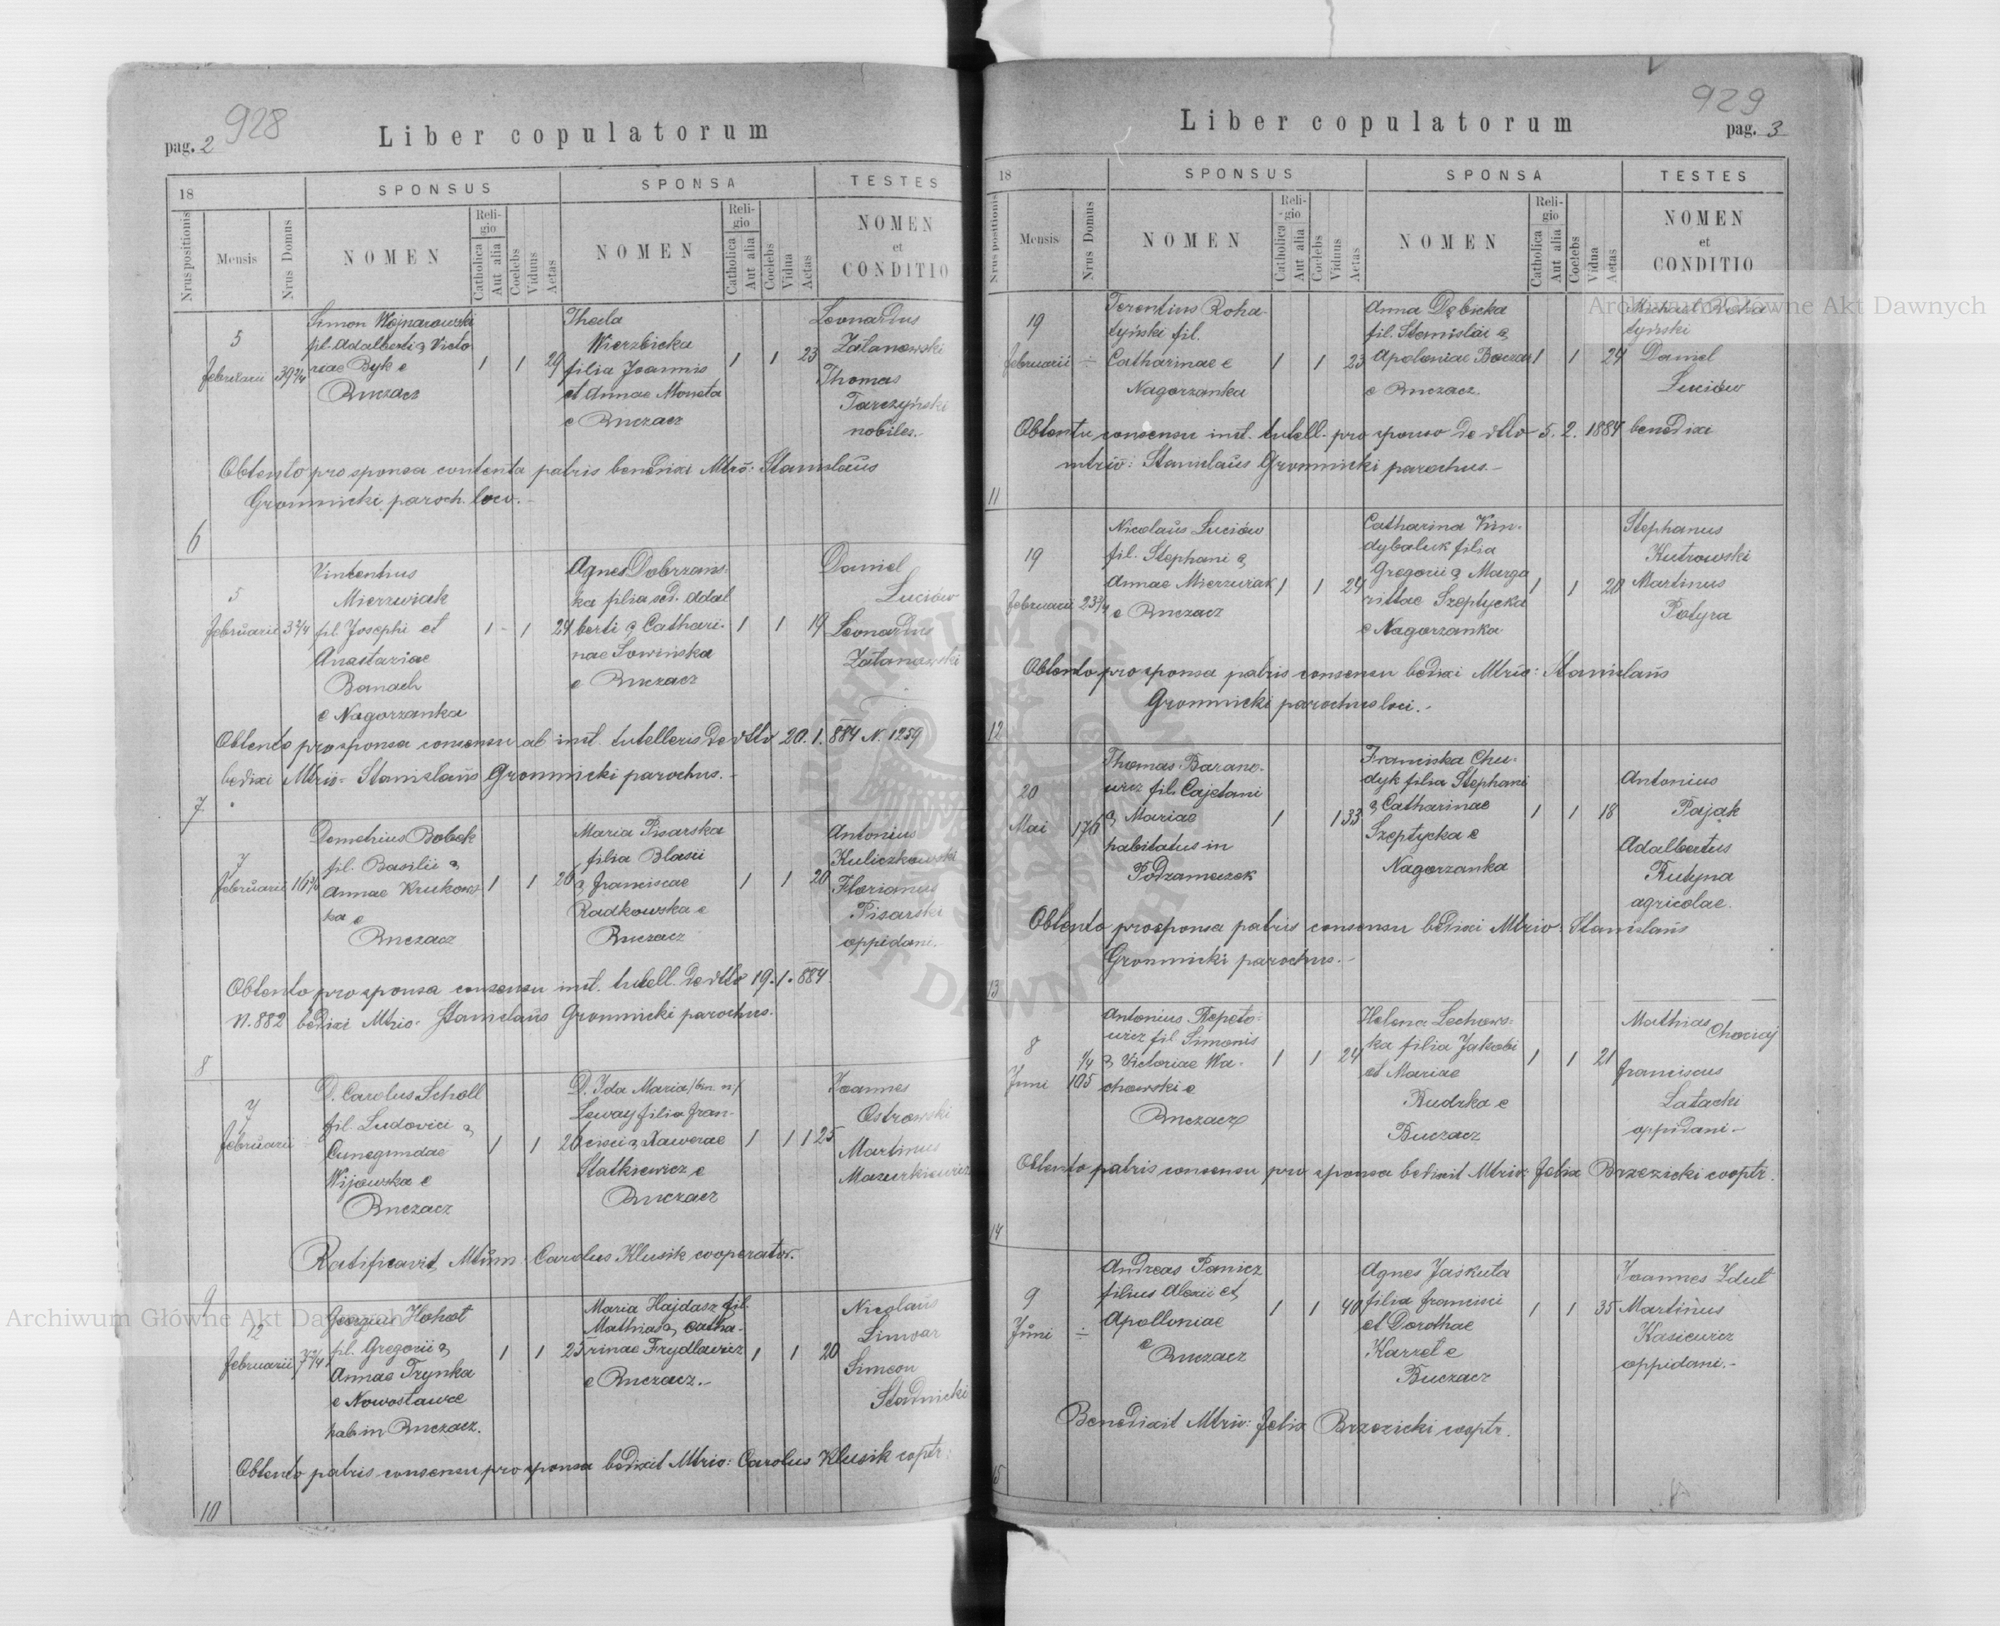 928
pag. 2
Liber copulatorum
18
SPONSUS
SPONSA
TESTES
Nrus positionis
Mensis
Nrus Domus
NOMEN
Religio
Catholica
Aut alia
Coelebs
Viduus
Aetas
NOMEN
Religio
Catholica
Aut alia
Coelebs
Vidua
Aetas
NOMEN
et
CONDITIO
5
Februarii
Simon Wojnarowski
fil. Adalberti & Victo
riae Byk e
Buczacz
1 1 29
Thecla
Wierzbicka
filia Joannis
et Annae Moneta
e Buczacz
1 1 23
Leonardus
Zatanowski
Thomas
Tarczyński
nobiles.
Obtento pro sponsa contenta patris benedixi Mtrõ: Stanislaŭs
Gromnicki paroch. loco.
6
5
Februarii
Vincentius
Mierzwiak
fil. Josephi et
Anastariae
Banach
e Nagorzanka
1 - 1 24
Agnes Dobrzans-
ka filia sed. Adal
berti & Cathari-
nae Sowińska
e Buczacz
1 1 19
Daniel
Luciów
Leonardus
Zatanowski
Obtento pro sponsa consensu ab inst. tutelleris de dtto 20. 1. 884 N. 1259
bedixi Mtrio- Stanislaŭs Gromnicki parochus.-
7
7
Februarii
Demetrius Bobek
fil. Basilii &
Annae Krukows
ka e
Buczacz
1 1 26
Maria Pisarska
filia Blasii
& Franciscae
Radkowska e
Buczacz
1 1 20
Antonius
Kuliczkowski
Florianus
Pisarski
oppidani.-
Obtento pro sponsa consensu inst. tutell. de dtto 19. 1. 884
N. 882 bedixi Mtrio- Stanislaŭs Gromnicki parochus.
8
7
Februarii
D. Carolus Scholl
fil. Ludovici &
Cunegundae
Wijowska e
Buczacz
1 1 26
D. Ida Maria /bin. n/
Leway filia Fran-
cisci & Xaverae
Statkiewicz e
Buczacz
1 1 1 25
Joannes
Ostrowski
Martinus
Mazurkiewicz
Ratificavit Mtrium Carolus Klusik cooperator.
9
12
Februarii
Georgius Hohot
fil. Gregorii &
Annae Trynka
e Nowostawce
hab in Buczacz.
1 1 25
Maria Hajdasz fil.
Mathias & Catha-
rinae Frydlewicz
e Buczacz.-
1 1 20
Nicolaŭs
Simear
Simeon
Stadnicki
Obtento patris consensu pro sponsa bedixit Mtrio: Carolus Klusik coptr:
10
929
pag. 3
Liber copulatorum
18
SPONSUS
SPONSA
TESTES
Nrus positionis
Mensis
Nrus Domus
NOMEN
Religio
Catholica
Aut alia
Coelebs
Viduus
Aetas
NOMEN
Religio
Catholica
Aut alia
Coelebs
Vidua
Aetas
NOMEN
et
CONDITIO
19
Februarii ÷
Terentius Roha-
tyński fil.
Catharinae e
Nagorzanka
1 1 23
Anna Dębicka
fil. Stanislai &
Apoloniae Boczar
e Buczacz.
1 1 24
Michael Roha
tyński
Daniel
Luciów
Obtentu consensu inst. tutell. pro sponso de dtto 5. 2. 1884 benedixi
mtriõ: Stanislaŭs Gromnicki parochus.-
11
19
Februarii
Nicolaŭs Luciów
fil. Stephani &
Annae Mierzwiak
e Buczacz
1 1 24
Catharina Kin-
dybaluk filia
Gregorii & Marga
rittae Szeptycka
e Nagorzanka
1 1 20
Stephanus
Kutrowski
Martinus
Potyra
Obtento pro sponsa patris consensu bedixi Mtrio: Stanislaŭs
Gromnicki parochus loci.-
12
20
Mai
176
Thomas Barano-
wicz fil. Cajetani
& Mariae
habitatus in
Podzameczek
1 1 33
Franciska Chu-
dyk filia Stephani
& Catharinae
Szeptycka e
Nagorzanka
1 1 18
Antonius
Pająk
Adalbertus
Rutyna
agricolae.
Obtento pro sponsa patris consensu bedixi Mtrio. Stanislaŭs
Gromnicki parochus.-
13
8
Juni
1/4
105
Antonius Repeto-
wicz fil. Simonis
& Victoriae Wa-
chowski e
Buczacz
1 1 24
Helena Lechows-
ka filia Jakobi
et Mariae
Rudzka e
Buczacz
1 1 21
Mathias Chociaj
Franciscus
Latacki
oppidani-
Obtento patris consensu pro sponsa bedixit Mtrio: Felix Brzezicki cooptr.
14
9
Jŭni ÷
Andreas Panicz
filius Alexii et
Apolloniae
e Buczacz
1 1 40
Agnes Jaskuta
filia Francisci
et Dorothae
Karzet e
Buczacz
1 1 35
Joannes Zdut
Martinus
Kasiewicz
oppidani.-
Benedixit Mtrio: Felix Brzezicki cooptr.
15
Archiwum Główne Akt Dawnych
Archiwum Główne Akt Dawnych
ARCHIWUM GŁÓWNE AKT DAWNYCH